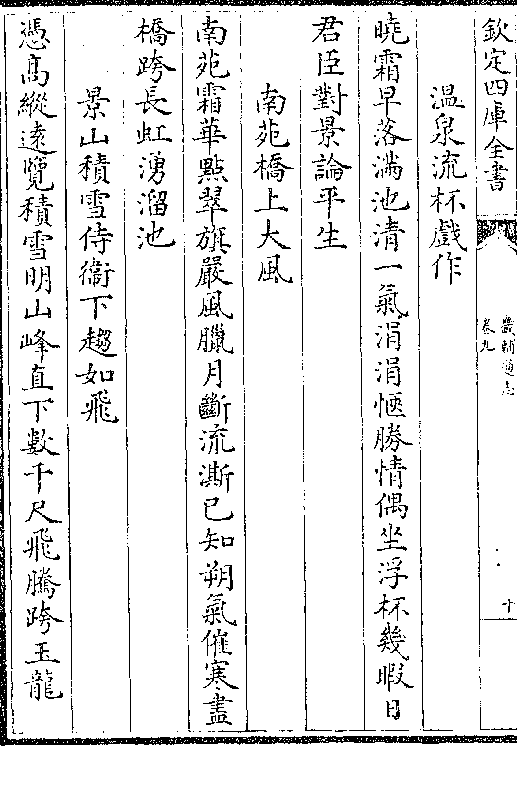 欽定四庫全書
畿輔通志
卷九
十
溫泉流杯戲作
曉霜早落滿池清一氣涓涓愜勝情偶坐浮杯幾暇日
君臣對景論平生
南苑橋上大風
南苑霜華點翠旗嚴風臘月斷流澌已知朔氣催寒盡
橋跨長虹湧溜池
景山積雪侍衞下趨如飛
憑高縱遠覽積雪明山峰直下數千尺飛騰跨玉龍